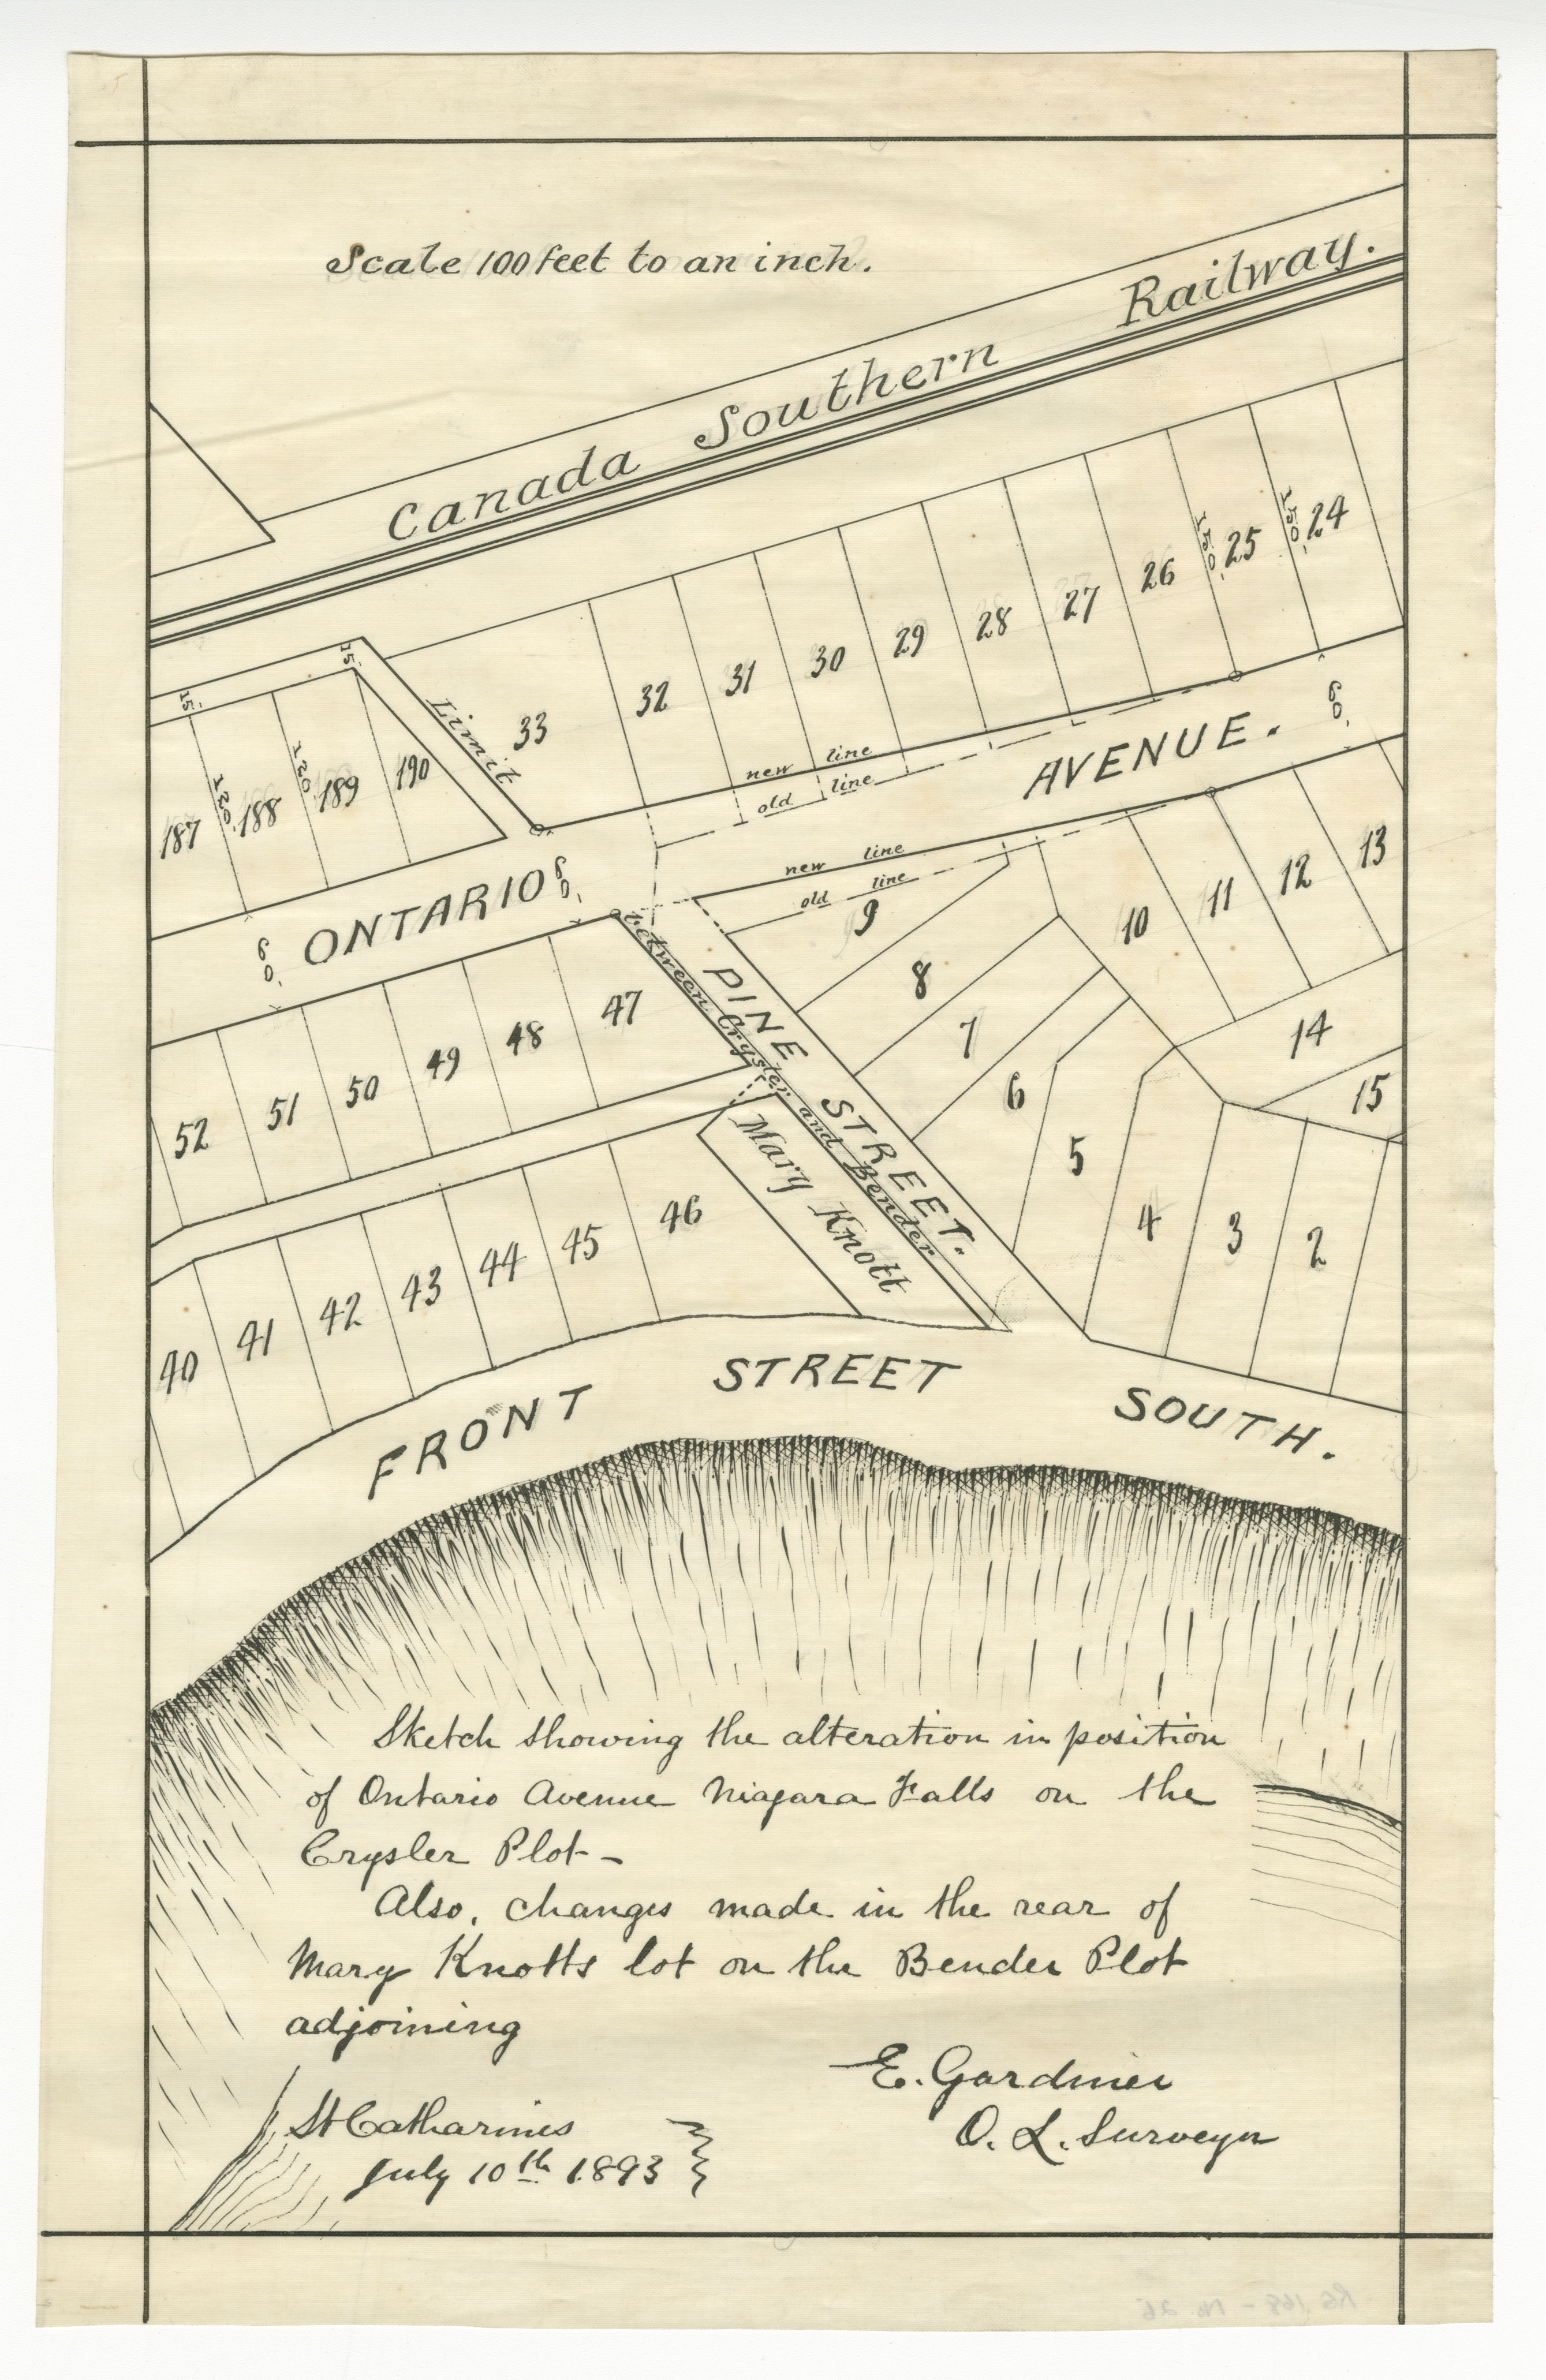 Scale 100 feet to an inch.
Canada Southern Railway.
24
150
25
150
26
27
28
29
30
31
32
33
Limit
15
15
187
120
188
120
189
190
new line
old line
AVENUE.
60
new line
old line
ONTARIO
60
60
9
8
7
6
5
4
3
2
10
11
12
13
14
15
PINE STREET.
between Crysler and Bender
Mary Knott
47
48
49
50
51
52
46
45
44
43
42
41
40
FRONT STREET SOUTH.
Sketch showing the alteration in position
of Ontario Avenue Niagara Falls on the
Crysler Plot-
Also, changes made in the rear of
Mary Knotts lot on the Bender Plot
adjoining
E. Gardiner
O. L. Surveyor
St Catharines
July 10th 1893